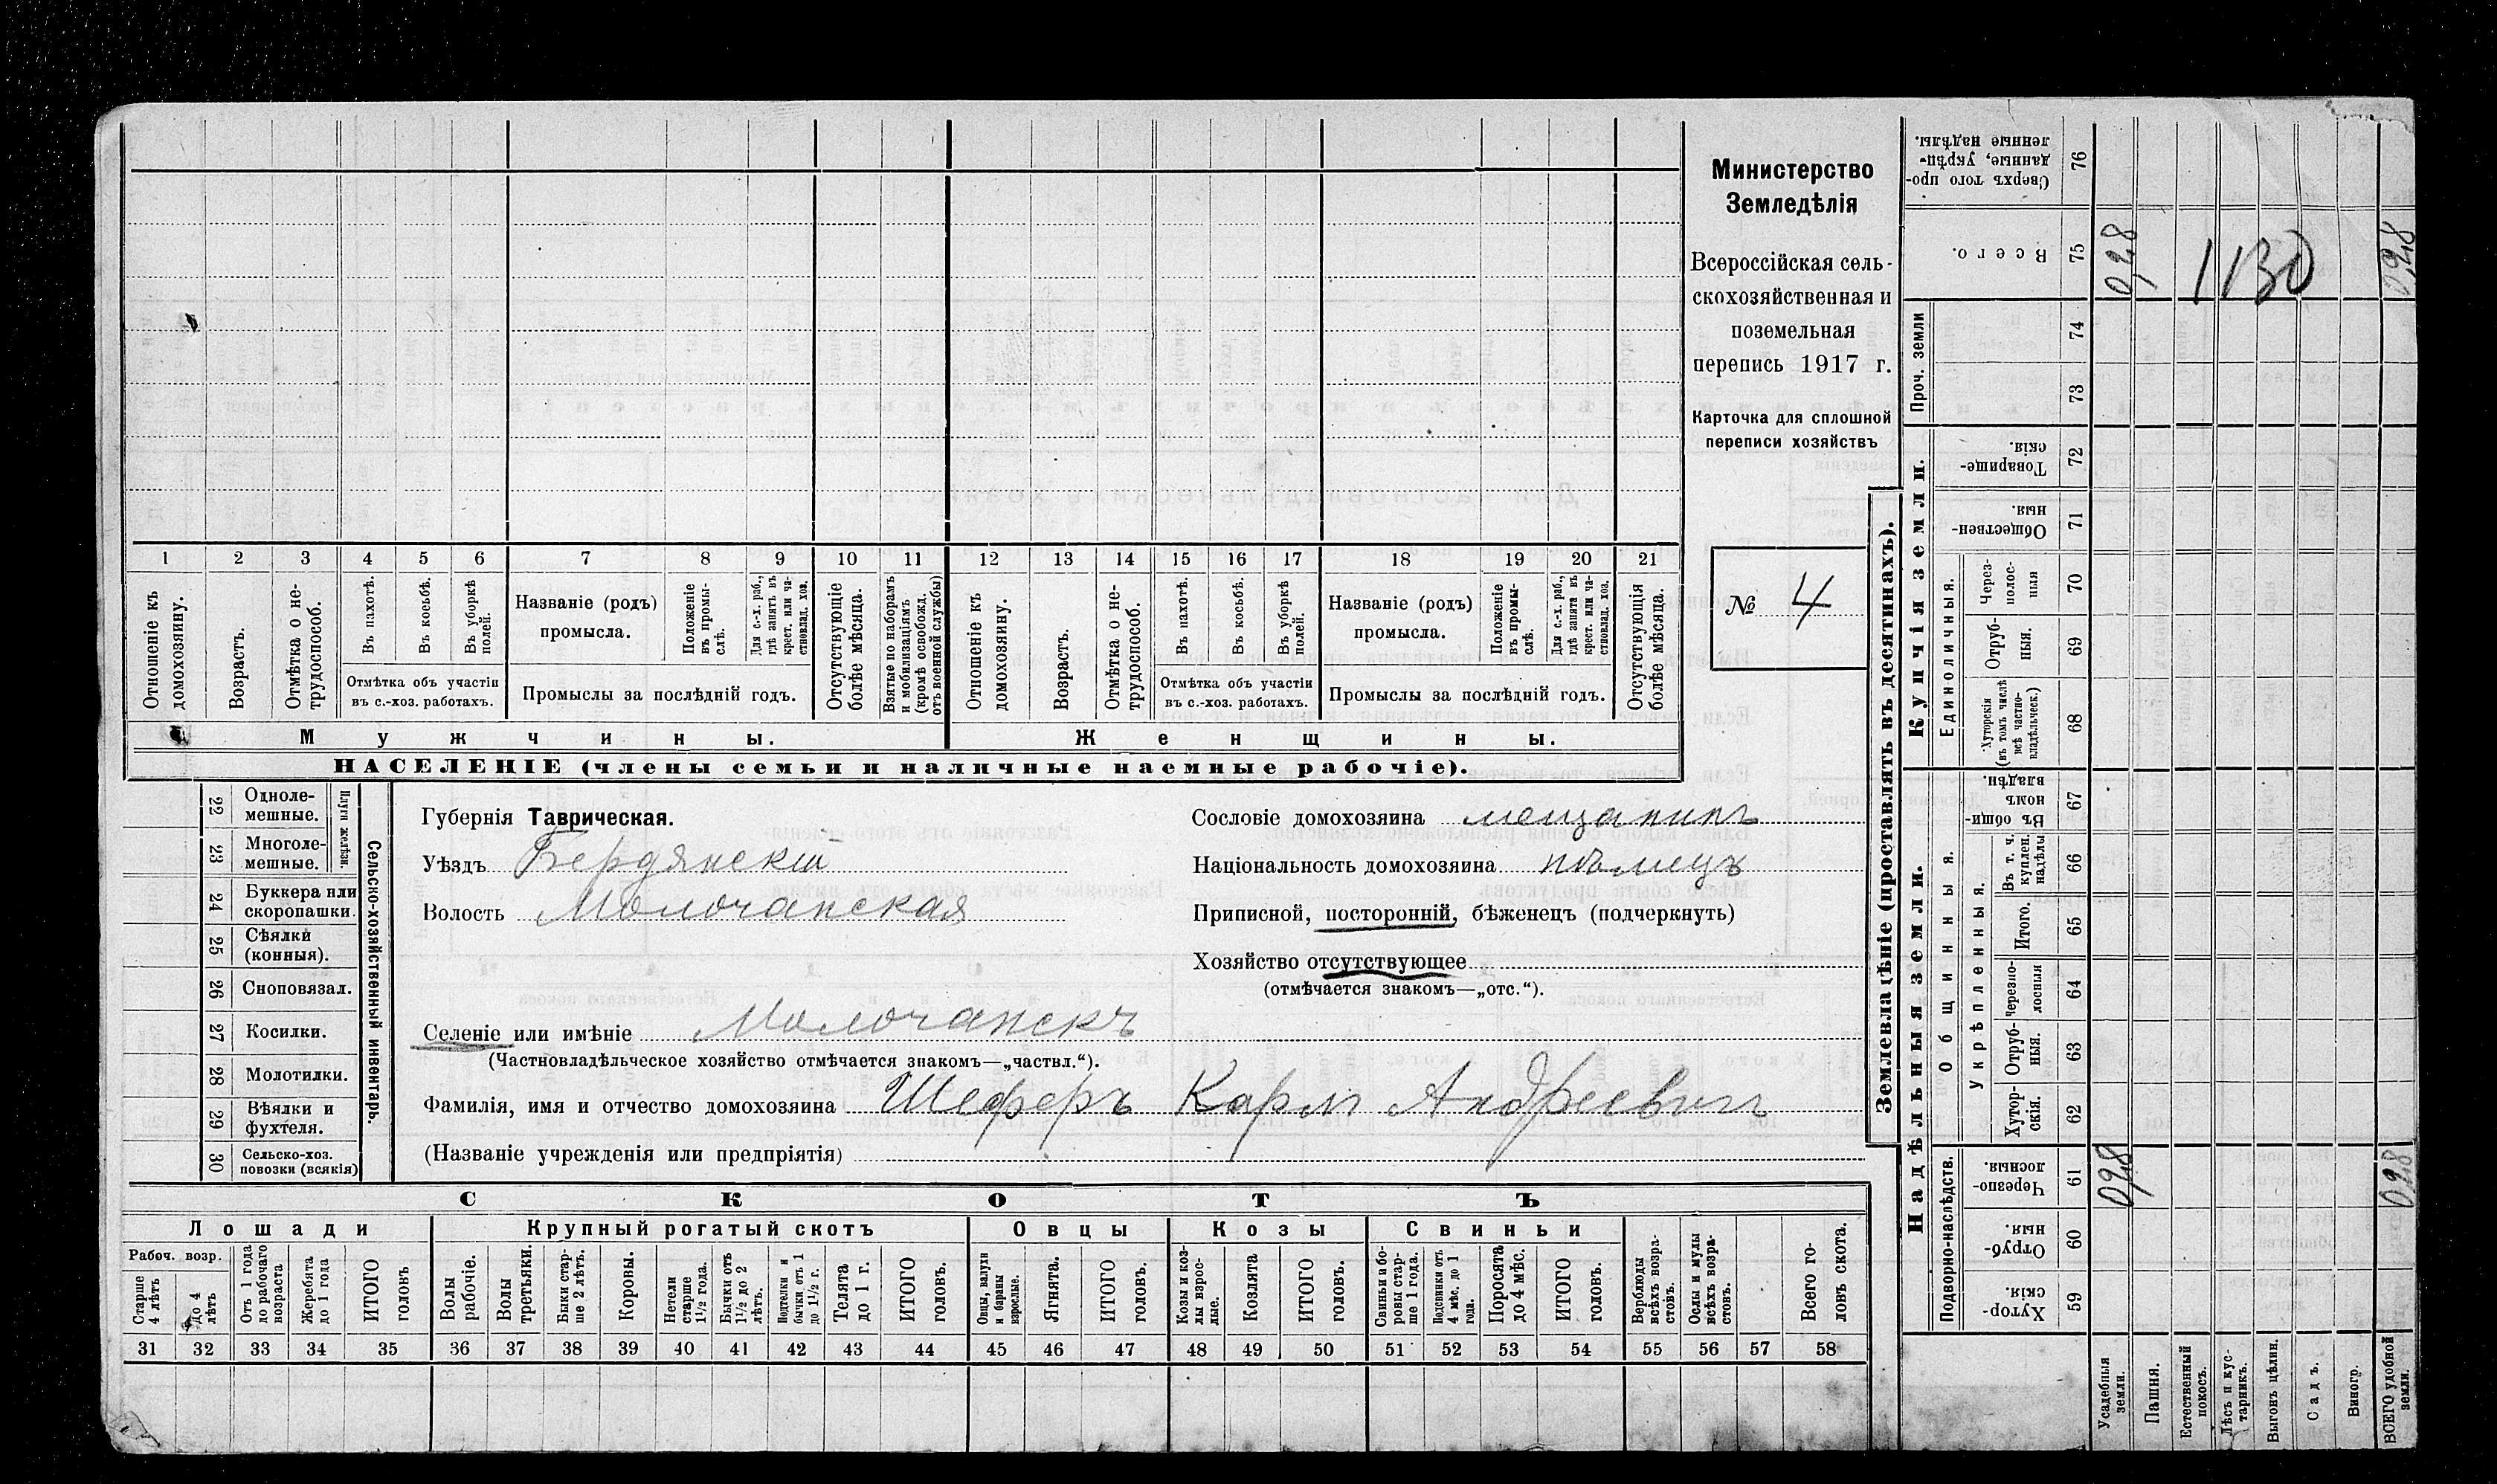 Министерство
Земледѣлія
Всероссійская сель-
скохозяйственная и
поземельная
перепись 1917 г.
Карточка для сплошной
переписи хозяйствъ
№ 4
1 2 3 4 5 6 7 8 9 10 11 12 13 14 15 16 17 18 19 20 21
Отношеніе къ домохозяину.
Возрастъ.
Отмѣтка о не-трудоспособ.
Въ пахотѣ.
Въ косьбѣ.
Въ уборкѣ полей.
Отмѣтка объ участіи
въ с.-хоз. работахъ.
Названіе (родъ)
промысла.
Положеніе въ промы-слѣ.
Для с.-х. раб., гдѣ занятъ въ крест. или ча-стновлад. хоз.
Промыслы за послѣдній годъ.
Отсутствующіе болѣе мѣсяца.
Взятые по наборамъ и мобилизаціямъ (кромѣ освобожд. отъ военной службы)
Отношеніе къ домохозяину.
Возрастъ.
Отмѣтка о не-трудоспособ.
Въ пахотѣ.
Въ косьбѣ.
Въ уборкѣ полей.
Отмѣтка объ участіи
въ с.-хоз. работахъ.
Названіе (родъ)
промысла.
Положеніе въ промы-слѣ.
Для с.-х. раб., гдѣ занята въ крест. или ча-стновлад. хоз.
Промыслы за послѣдній годъ.
Отсутствующія болѣе мѣсяца.
Мужчины. Женщины.
НАСЕЛЕНІЕ (члены семьи и наличные наемные рабочіе).
Сельско-хозяйственный инвентарь.
Плуги желѣзн.
22 Одноле-
мешные.
23 Многоле-
мешные.
24 Буккера или
скоропашки.
25 Сѣялки
(конныя).
26 Сноповязал.
27 Косилки.
28 Молотилки.
29 Вѣялки и
фухтеля.
30 Сельско-хоз.
повозки (всякія)
Губернія Таврическая.
Уѣздъ Бердянскій
Волость Молочанская
Сословіе домохозяина мещанинъ
Національность домохозяина нѣмецъ
Приписной, посторонній, бѣженецъ (подчеркнуть)
Хозяйство отсутствующее
(отмѣчается знакомъ—„отс.“).
Селеніе или имѣніе Молочанскъ
(Частновладѣльческое хозяйство отмѣчается знакомъ—„частвл.“).
Фамилія, имя и отчество домохозяина Шеферъ Карлъ Андреевичъ
(Названіе учрежденія или предпріятія)
СКОТЪ
Лошади Крупный рогатый скотъ Овцы Козы Свиньи
Рабоч. возр.
Старше 4 лѣтъ
до 4 лѣтъ
Отъ 1 года до рабочаго возраста
Жеребята до 1 года
ИТОГО головъ
Волы рабочіе.
Волы третьяки.
Быки стар-ше 2 лѣтъ.
Коровы.
Нетели старше 1½ года.
Бычки отъ 1½ до 2 лѣтъ.
Подтелки и бычки отъ 1 до 1½ г.
Телята до 1 г.
ИТОГО головъ.
Овцы, валухи и бараны взрослые.
Ягнята.
ИТОГО головъ.
Козы и коз-лы взрос-лые.
Козлята
ИТОГО головъ.
Свиньи и бо-ровы стар-ше 1 года.
Подсвинки отъ 4 мѣс. до 1 года.
Поросята до 4 мѣс.
ИТОГО головъ.
Верблюды всѣхъ возра-стовъ.
Ослы и мулы всѣхъ возра-стовъ.
Всего го-ловъ скота.
31 32 33 34 35 36 37 38 39 40 41 42 43 44 45 46 47 48 49 50 51 52 53 54 55 56 57 58
Землевладѣніе (проставлять въ десятинахъ).
Сверхъ того про-данные, укрѣп-ленные надѣлы. 76
Всего. 75 0,28 1130 0,28
Проч. земли
74
73
Купчія земли.
Товарище-скія. 72
Обществен-ныя. 71
Единоличныя.
Через-полос-ныя 70
Отруб-ныя. 69
Хуторскія (въ томъ числѣ всѣ частно-владѣльческ.) 68
Надѣльныя земли.
Общинныя.
Въ общи-номъ владѣн. 67
Укрѣпленныя.
Въ т. ч. куплен. надѣлы 66
Итого. 65
Черезпо-лосныя 64
Отруб-ныя. 63
Хутор-скія. 62
Подворно-наслѣдств.
Черезпо-лосныя. 61 0,28 0,28
Отруб-ныя. 60
Хутор-скія. 59
Усадебныя земли.
Пашня.
Естественный покосъ.
Лѣсъ и кус-тарникъ.
Выгонъ цѣлин.
Садъ.
Виногр.
ВСЕГО удобной земли.